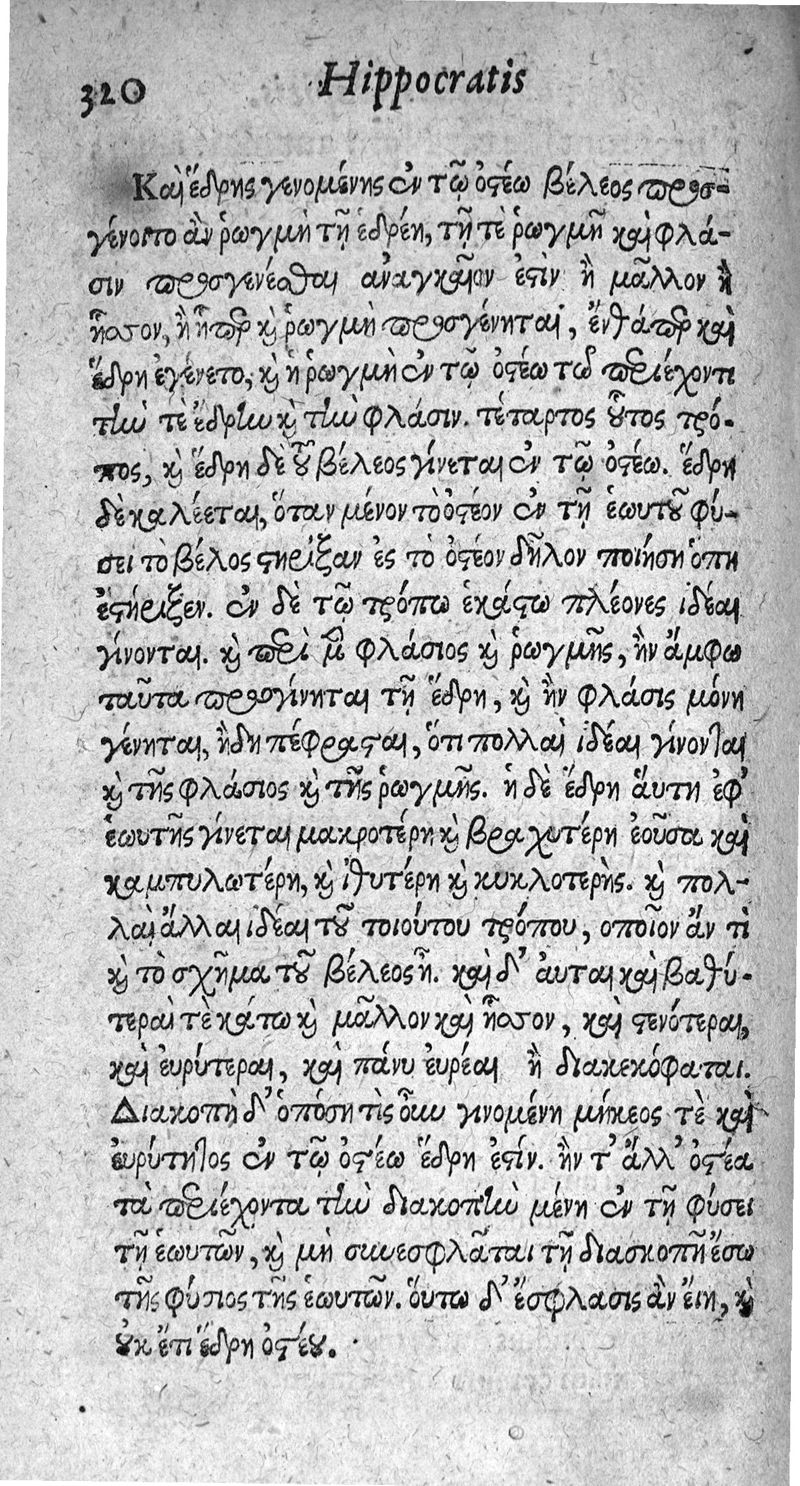 320 Hippocratis
Καὶ ἕδρης γενομένης ἐν τῷ ὀστέω βέλεος προσ-
γένοιτο ἂν ῥωγμὴ τῇ ἑδρέη, τῇ τὲ ῥωγμῇ καὶ φλά-
σιν προσγενέσθαι ἀναγκαῖον ἐστὶν ἢ μᾶλλον ἢ
ἧσσον, ἢ ἥπερ καὶ ῥωγμὴ προσγένηται, ἔνθάπερ καὶ
ἕδρη ἐγένετο, καὶ ἡ ῥωγμὴ ἐν τῷ ὀστέω τῶ περιέχοντι
τὴν τὲ ἕδρην καὶ τὴν φλάσιν. τέταρτος οὗτος τρό-
πος, καὶ ἕδρη δὲ οὗ βέλεος γίνεται ἐν τῷ ὀστέω. ἕδρη
δὲ καλέεται, ὅταν μένον τὸ ὀστέον ἐν τῇ ἑωυτοῦ φύ-
σει τὸ βέλος στηρίξαν ἐς τὸ ὀστέον δῆλον ποιήση ὁπη
ἐστήριξεν. ἐν δὲ τῷ τρόπω ἑκάστω πλέονες ἰδέαι
γίνονται. καὶ περὶ μὲν φλάσιος καὶ ῥωγμῆς, ἢν ἄμφω
ταῦτα προσγίνηται τῇ ἕδρη, καὶ ἢν φλάσις μόνη
γένηται, ἤδη πέφρασται, ὅτι πολλαὶ ἰδέαι γίνονται
καὶ τῆς φλάσιος καὶ τῆς ῥωγμῆς. ἡ δὲ ἕδρη ἁύτη ἐφ’
ἑωυτῆς γίνεται μακροτέρη καὶ βραχυτέρη ἐοῦσα καὶ
καμπυλωτέρη, καὶ ἰθυτέρη καὶ κυκλοτερὴς. καὶ πολ-
λαὶ ἄλλαι ἰδέαι τοῦ τοιούτου τρόπου, οποῖον ἄν τὶ
καὶ τὸ σχῆμα τοῦ βέλεος ἦ. καὶ δ’ ἁυται καὶ βαθύ-
τεραὶ τὲ κάτω καὶ μᾶλλον καὶ ἧσσον, καὶ στενότεραι,
καὶ ἐυρύτεραι, καὶ πάνυ ἐυρέαι ἢ διακεκόφαται.
Διακοπὴ δ’ ὁπόση τὶς οὖν γινομένη μήκεος τὲ καὶ
ἐυρύτητος ἐν τῷ ὀστέω ἕδρη ἐστίν. ἢν τ’ ἄλλ’ ὀστέα
τὰ περιέχοντα τὴν διακοπὴν μένη ἐν τῇ φύσει
τῇ ἑωυτῶν, καὶ μὴ συνεσφλᾶται τῇ διασκοπῇ ἔσω
τῆς φύσιος τῆς ἑωυτῶν. ὅυτω δ’ ἔσφλασις ἂν ἔιη, καὶ
οὐκ ἔπ ἕδρη ὀστέου.